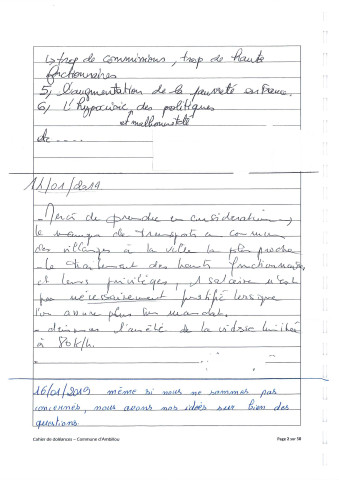 ↳ trop de commissions, trop de haute
fonctionnaires
5) L'augmentation de la pauvreté en France.
6) L'hypocrisie des politiques
et malhonnêteté
etc .....
14/01/2019
- Merci de prendre en considération,
le manque de transports en commun
des villages à la ville la plus proche
- le traitement des hauts fonctionnaires
et leurs privilèges, 1 salaire n'est
pas nécessairement justifié lorsque
l'on assure plus son mandat.
- l'arrêté de la vitesse limitée
à 80k/h.
16/01/2019 même si nous ne sommes pas
concernés, nous avons nos idées sur bien des
questions.
Cahier de doléances – Commune d'Ambillou Page 2 sur 58